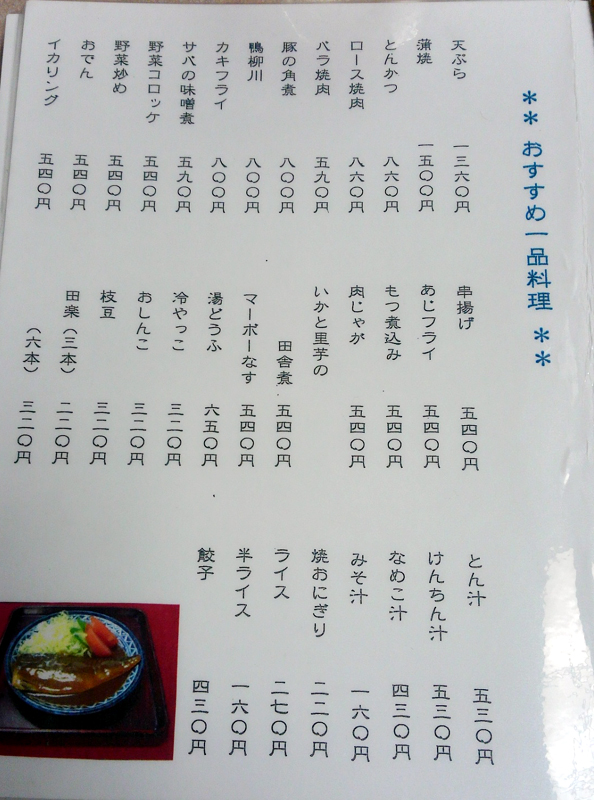 ** おすすめ一品料理 **
天ぷら 一三六〇円
蒲焼 一五〇〇円
とんかつ 八六〇円
ロース焼肉 八六〇円
バラ焼肉 五九〇円
豚の角煮 八〇〇円
鴨柳川 八〇〇円
カキフライ 八〇〇円
サバの味噌煮 五九〇円
野菜コロッケ 五四〇円
野菜炒め 五四〇円
おでん 五四〇円
イカリング 五四〇円
串揚げ 五四〇円
あじフライ 五四〇円
もつ煮込み 五四〇円
肉じゃが 五四〇円
いかと里芋の
田舎煮 五四〇円
マーボーなす 五四〇円
湯どうふ 六五〇円
冷やっこ 三二〇円
おしんこ 三二〇円
枝豆 三二〇円
田楽(三本) 二二〇円
(六本) 三二〇円
とん汁 五三〇円
けんちん汁 五三〇円
なめこ汁 四三〇円
みそ汁 一六〇円
焼おにぎり 二二〇円
ライス 二七〇円
半ライス 一六〇円
餃子 四三〇円